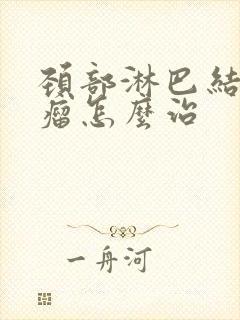 頚部淋巴結
瘤怎麽治
一舟河